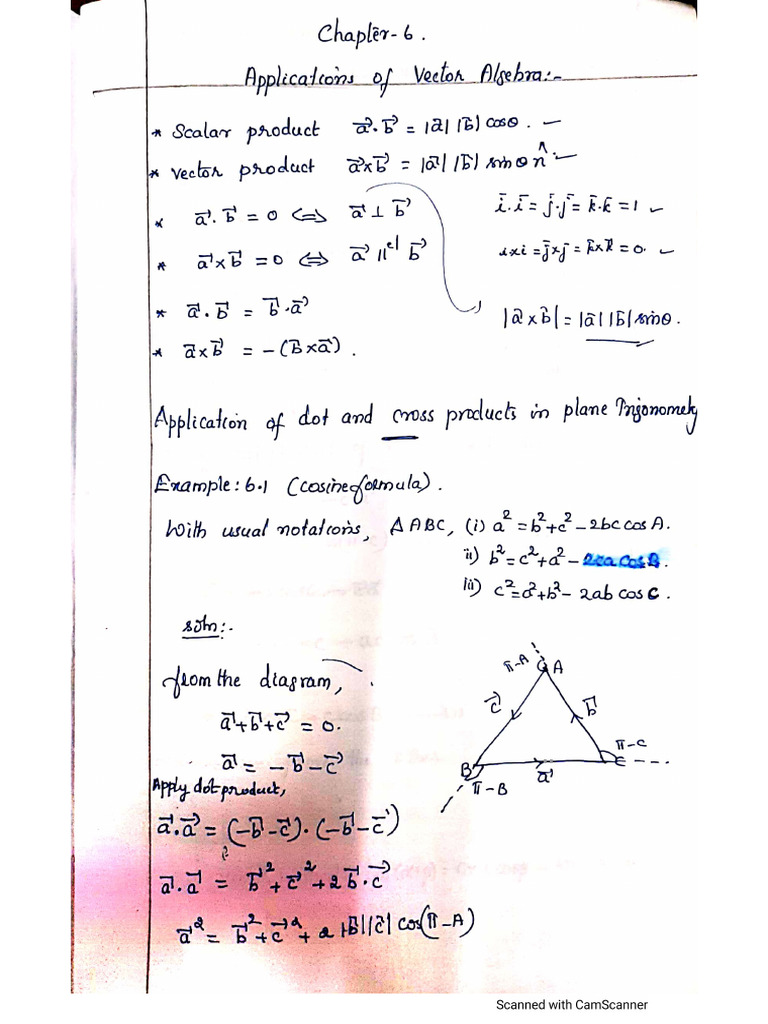 Chapter-6.
Applications of Vector Algebra:-
* Scalar product a⃗.b⃗ = |a⃗| |b⃗| cosθ.
* vector product a⃗×b⃗ = |a⃗| |b⃗| sinθ n̂.
* a⃗.b⃗ = 0 ⇔ a⃗ ⊥ b⃗ i⃗.i⃗ = j⃗.j⃗ = k⃗.k⃗ = 1
* a⃗×b⃗ = 0 ⇔ a⃗ ||el b⃗ i×i = j⃗×j = k⃗×k⃗ = 0.
* a⃗.b⃗ = b⃗.a⃗ |a⃗×b⃗| = |a⃗| |b⃗| sinθ.
* a⃗×b⃗ = -(b⃗×a⃗).
Application of dot and cross products in plane Trigonometry
Example: 6.1 (cosine formula).
With usual notations, ΔABC, (i) a² = b²+c² - 2bc cos A.
ii) b² = c²+a² - 2ca cos B.
iii) c² = a²+b² - 2ab cos C.
soln:-
from the diagram,
a⃗+b⃗+c⃗ = 0.
a⃗ = -b⃗-c⃗
Apply dot product,
a⃗.a⃗ = (-b⃗-c⃗).(-b⃗-c⃗)
a⃗.a⃗ = b⃗²+c⃗²+2b⃗.c⃗
a⃗² = b⃗²+c⃗²+2|b⃗||c⃗| cos(π-A)
π-A A
c⃗ b⃗
π-C
B C
π-B a⃗
Scanned with CamScanner